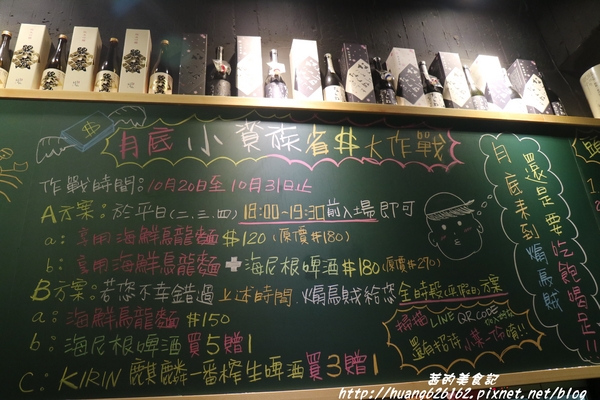 月底小資族省$大作戰
作戰時間：10月20日至10月31日止
A方案：於平日(二.三.四) 18:00~19:30前入場即可
a：享用海鮮烏龍麵 $120 (原價$180)
b：享用海鮮烏龍麵 + 海尼根啤酒 $180 (原價$270)
B方案：若您不幸錯過上述時間，焗烏賊給您全時段優惠的方案
a：海鮮烏龍麵 $150
b：海尼根啤酒 買5贈1
C：KIRIN 麒麟一番榨生啤酒 買3贈1
還是要吃飽喝足!!
月底來到焗烏賊
掃描 LINE QR CODE
還有招待小菜一份唷!!
茜的美食記
http://huang626162.pixnet.net/blog